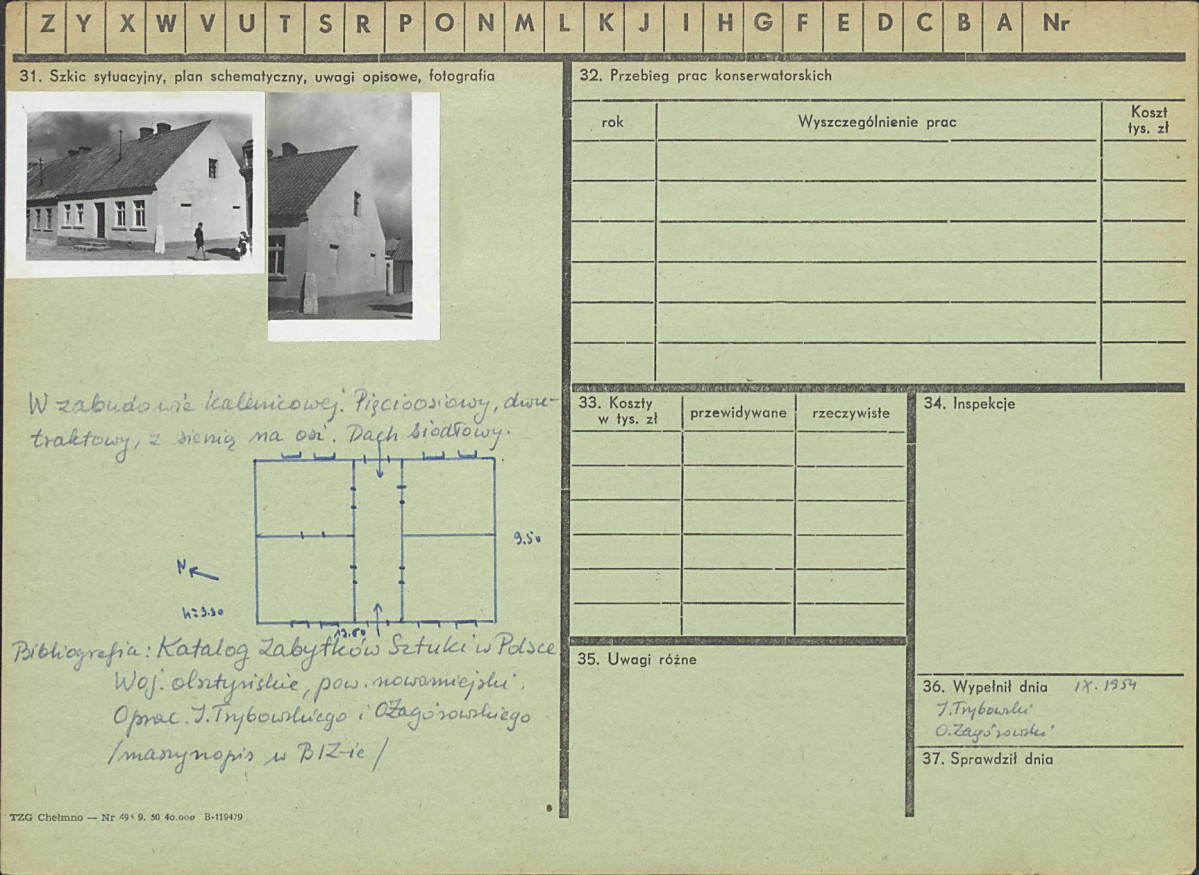 Z Y X W V U T S R P O N M L K J I H G F E D C B A Nr
31. Szkic sytuacyjny, plan schematyczny, uwagi opisowe, fotografia
W zabudowie kalenicowej. Pięcioosiowy, dwu-
traktowy, z sienią na osi. Dach siodłowy.
9.50
N
h=3.30
13.60
Bibliografia: Katalog Zabytków Sztuki w Polsce
Woj. olsztyńskie, pow. nowomiejski.
Oprac. J. Trybowskiego i O Zagórowskiego
/maszynopis w BIZ-ie/
TZG Chełmno — Nr 9. 50 40.000 B-119479
32. Przebieg prac konserwatorskich
rok
Wyszczególnienie prac
Koszt
tys. zł
33. Koszty
w tys. zł
przewidywane
rzeczywiste
34. Inspekcje
35. Uwagi różne
36. Wypełnił dnia IX. 1954
J. Trybowski
O. Zagórowski
37. Sprawdził dnia